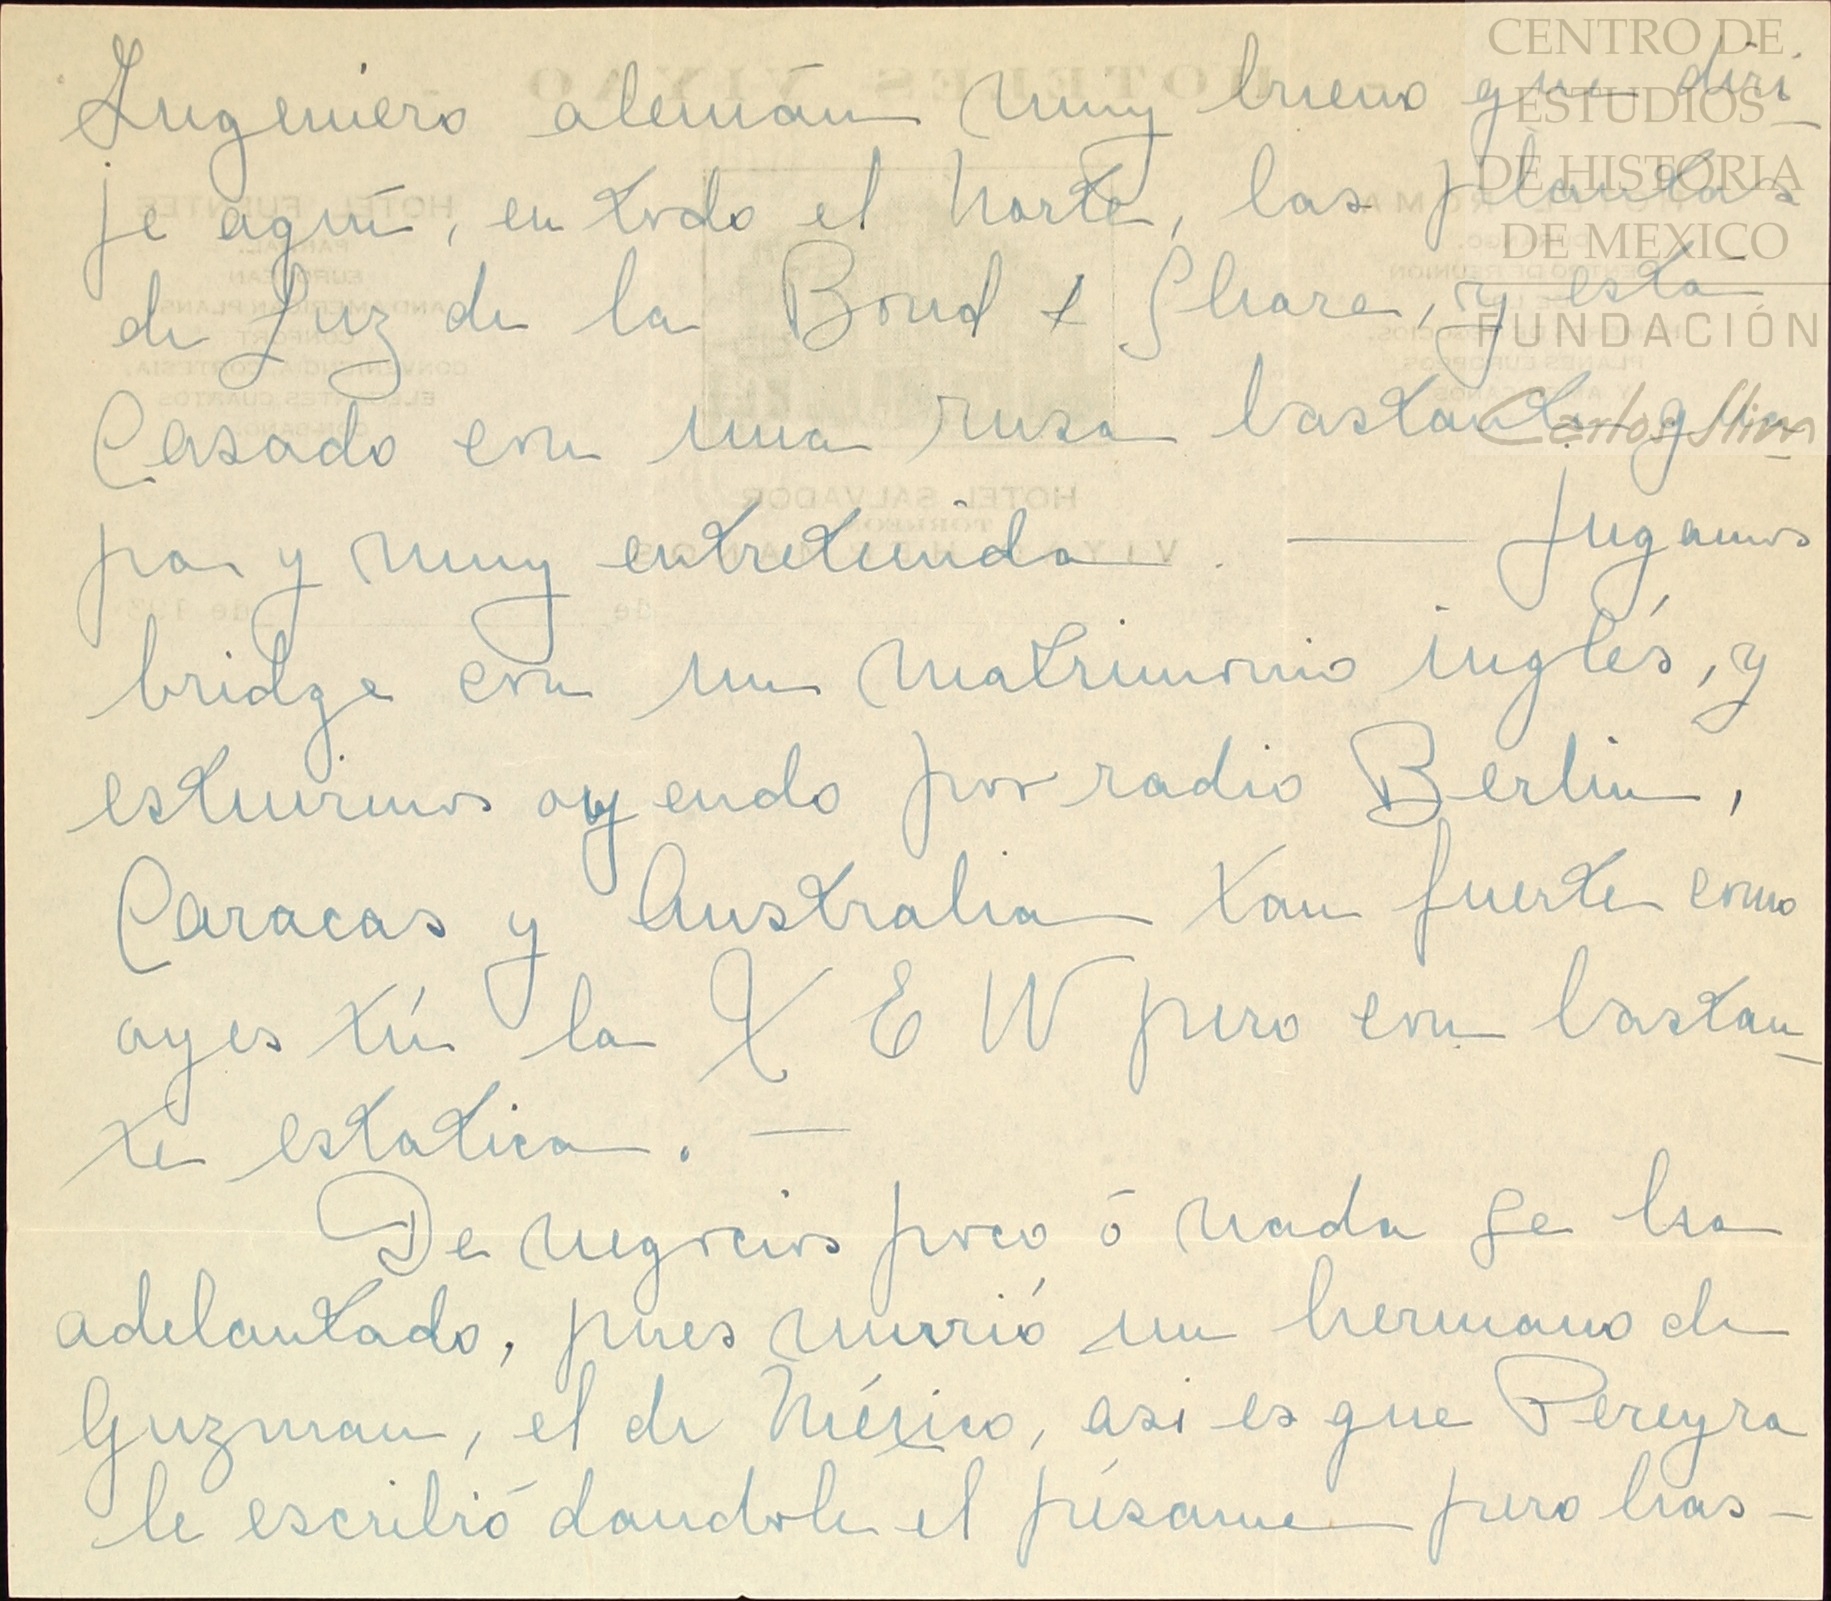 Ingeniero alemán muy bueno que diri-
je aquí, en todo el Norte, las plantas
de Luz de la Bond & Share, y está
Casado con una rusa bastante gua-
pa y muy entretenida. — Jugamos
bridge con un matrimonio inglés, y
estuvimos oyendo por radio Berlin,
Caracas y Australia tan fuerte como
oyes tú la X E W pero con bastan-
te estatica. —
De negocios poco ó nada se ha
adelantado, pues murió un hermano de
Guzman, el de México, asi es que Pereyra
le escribió dandole el pésame pero has-
CENTRO DE
ESTUDIOS
DE HISTORIA
DE MEXICO
FUNDACIÓN
Carlos Slim